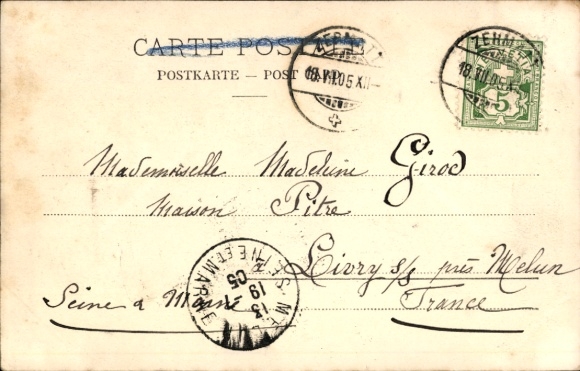 CARTE POSTALE
POSTKARTE — POST
ZERMATT
18.VII.05.XII
ZERMATT
18.VII.05.X
5
Mademoiselle Madeleine Girod
Maison Pitre
Livry s/s près Melun
Seine & Marne France
SEINE ET MARNE
13
19
05